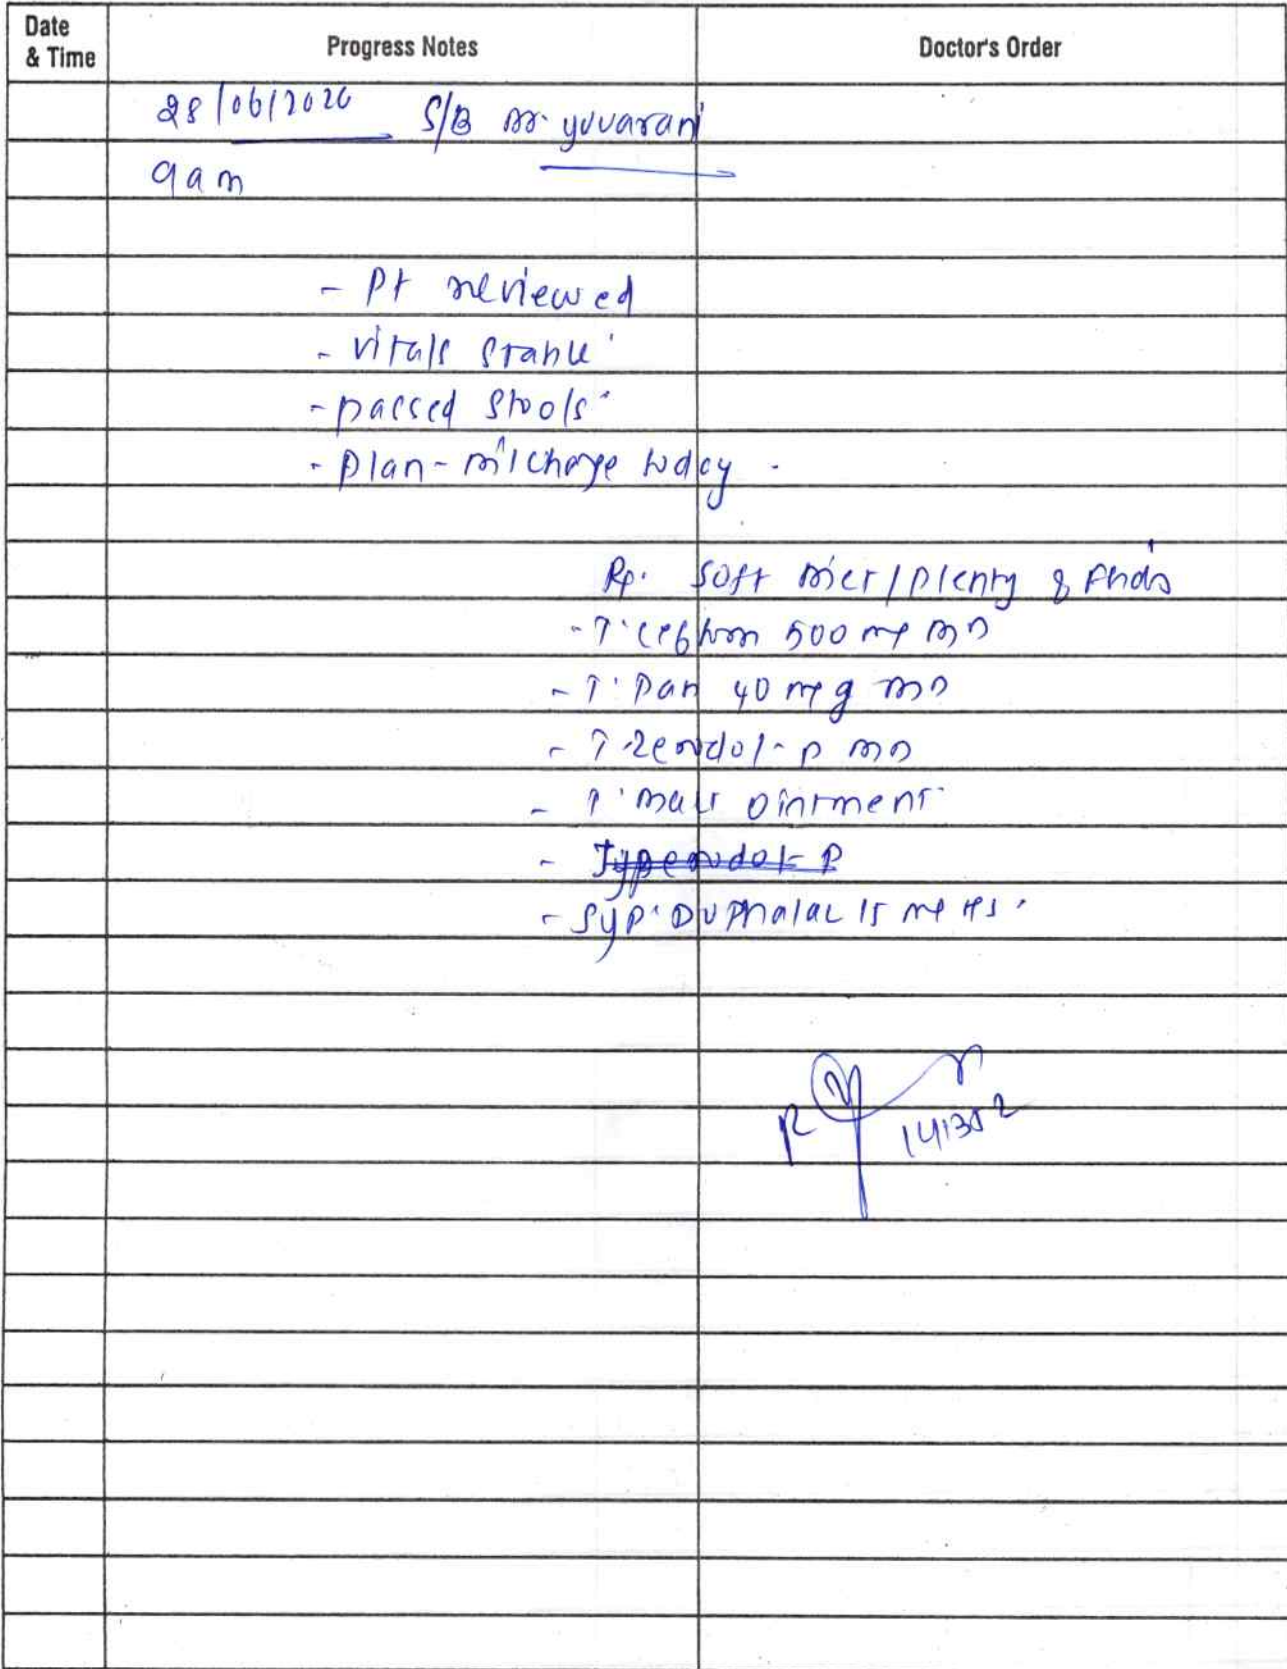 Date & Time Progress Notes Doctor's Order
28/06/2026 S/B Dr. yuvarani
9am
- Pt reviewed
- vitals stable
- passed stools
- plan - Discharge today.
Rp. Soft Diet / plenty of fluids
- T. 500 mg BD
- T. Pan 40 mg BD
- T. Zerodol-P BD
- T. ointment
- Syp. Duphalac 15 ml HS.
141302